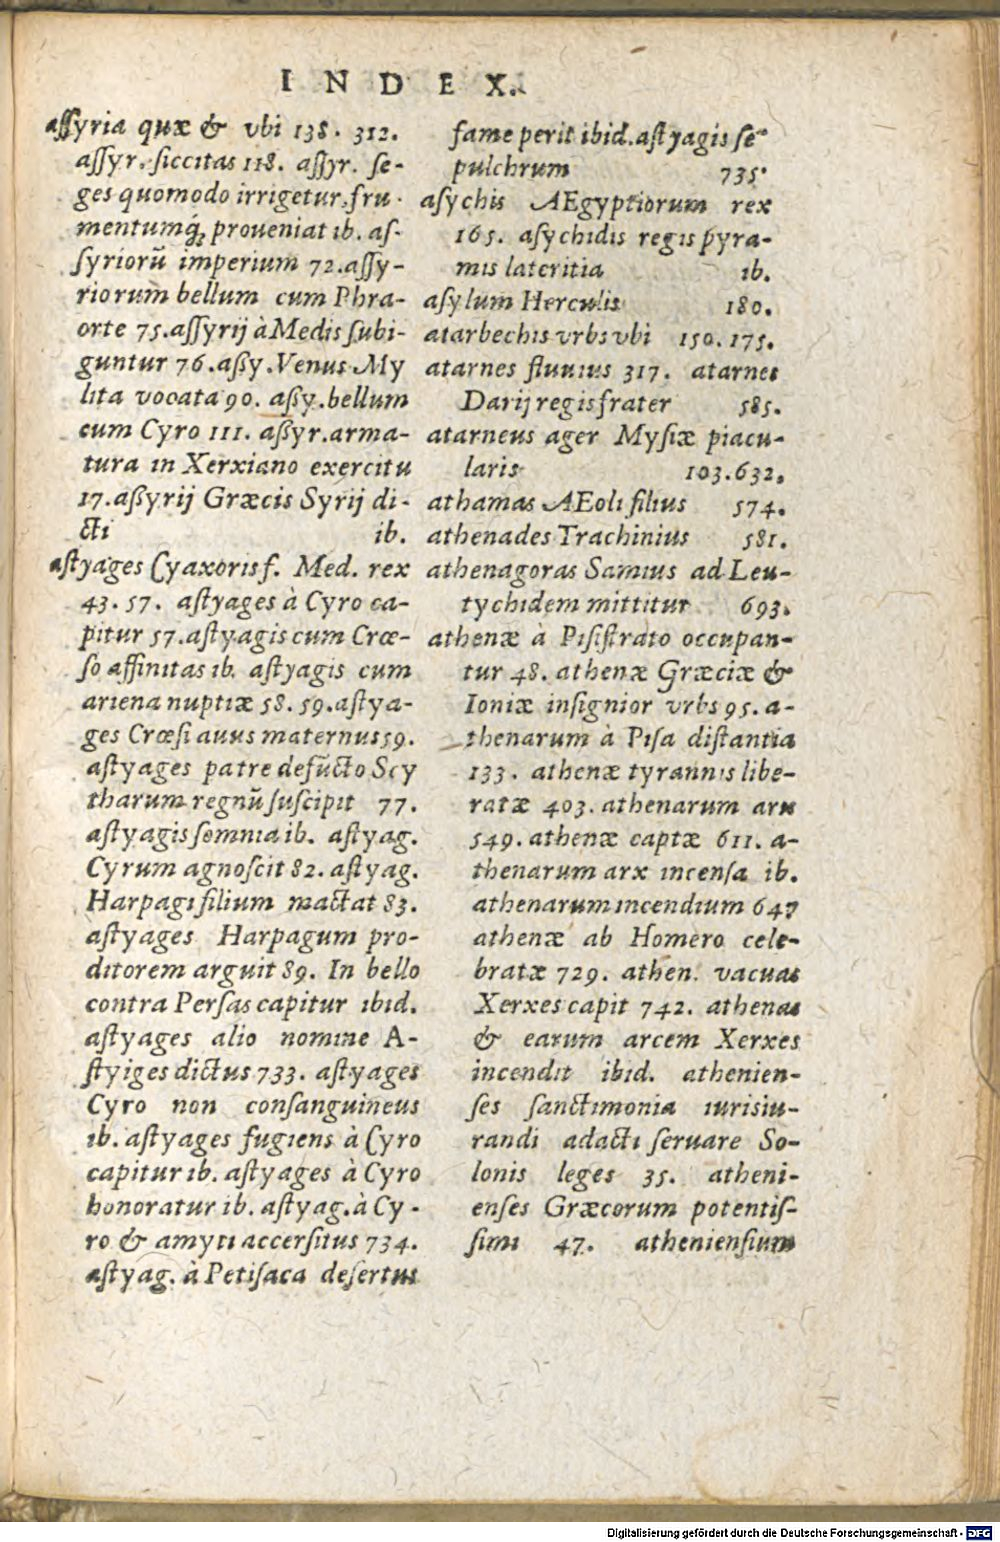 INDEX.
assyria quæ & vbi 138. 312.
assyr. siccitas 118. assyr. se-
ges quomodo irrigetur, fru-
mentumq́; proueniat ib. as-
syriorū imperium 72. assy-
riorum bellum cum Phra-
orte 75. assyrij à Medis subi-
guntur 76. aßy. Venus My
lita vocata 90. aßy. bellum
cum Cyro 111. aßyr. arma-
tura in Xerxiano exercitu
17. aßyrij Græcis Syrij di-
cti ib.
astyages Cyaxoris f. Med. rex
43. 57. astyages à Cyro ca-
pitur 57. astyagis cum Crœ-
so affinitas ib. astyagis cum
ariena nuptiæ 58. 59. astya-
ges Crœsi auus maternus 59.
astyages patre defūcto Scy
tharum regnū suscipit 77.
astyagis somnia ib. astyag.
Cyrum agnoscit 82. astyag.
Harpagi filium mactat 83.
astyages Harpagum pro-
ditorem arguit 89. In bello
contra Persas capitur ibid.
astyages alio nomine A-
styiges dictus 733. astyages
Cyro non consanguineus
ib. astyages fugiens à Cyro
capitur ib. astyages à Cyro
honoratur ib. astyag. à Cy-
ro & amyti accersitus 734.
astyag. à Petisaca desertus
fame perit ibid. astyagis se-
pulchrum 735.
asychis AEgyptiorum rex
165. asychidis regis pyra-
mis lateritia ib.
asylum Herculis 180.
atarbechis vrbs vbi 150. 175.
atarnes fluuius 317. atarnes
Darij regis frater 585.
atarneus ager Mysiæ piacu-
laris 103. 632.
athamas AEoli filius 574.
athenades Trachinius 581.
athenagoras Samius ad Leu-
tychidem mittitur 693.
athenæ à Pisistrato occupan-
tur 48. athenæ Græciæ &
Ioniæ insignior vrbs 95. a-
thenarum à Pisa distantia
133. athenæ tyrannis libe-
ratæ 403. athenarum arx
549. athenæ captæ 611. a-
thenarum arx incensa ib.
athenarum incendium 647
athenæ ab Homero cele-
bratæ 729. athen. vacuas
Xerxes capit 742. athenas
& earum arcem Xerxes
incendit ibid. athenien-
ses sanctimonia iurisiu-
randi adacti seruare So-
lonis leges 35. atheni-
enses Græcorum potentis-
simi 47. atheniensium
Digitalisierung gefördert durch die Deutsche Forschungsgemeinschaft - DFG